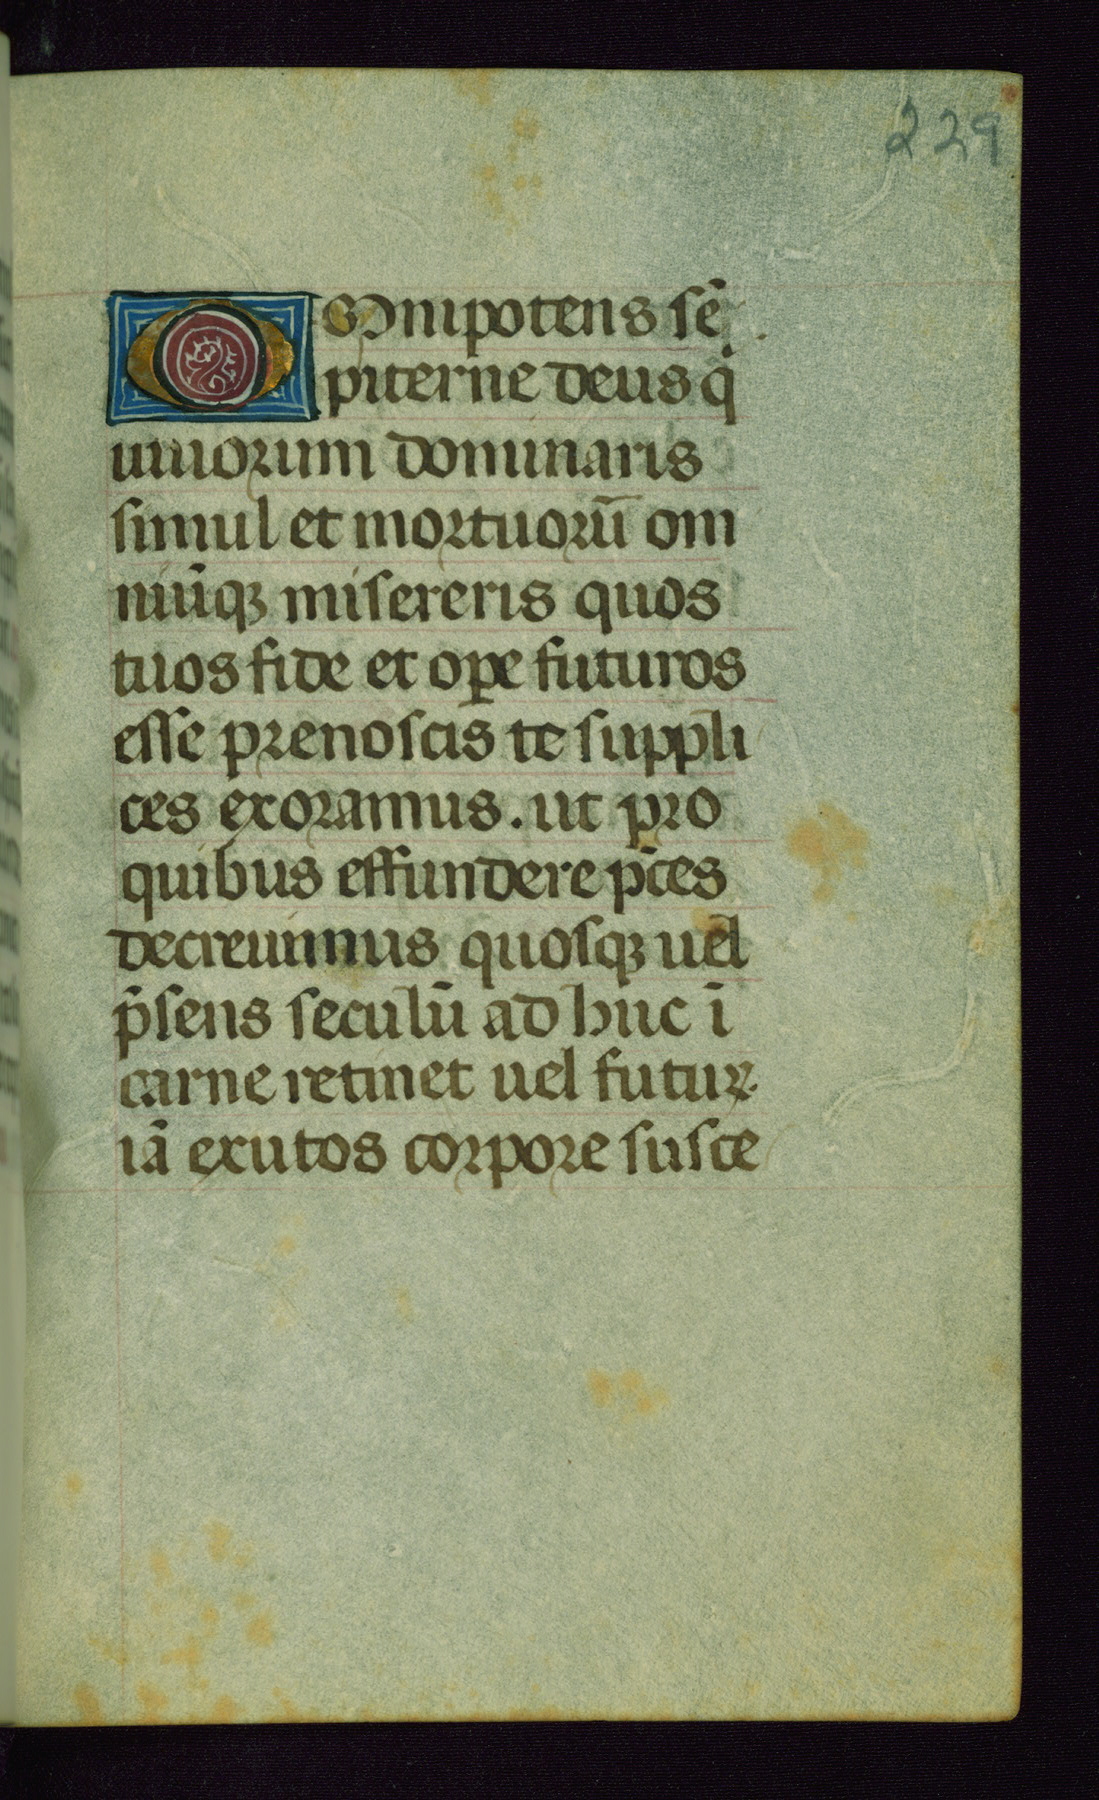 229
Omnipotens sē
piterne deus q̇
uiuorum dominaris
simul et mortuorū om
niūqꝫ misereris quos
tuos fide et oꝑe futuros
esse prenoscis te suppli
ces exoramus. ut pro
quibus effundere p̄ces
decreuimus quosqꝫ uel
p̄sens seculū ad huc ī
carne retinet uel futuꝝ
iā exutos corpore susce